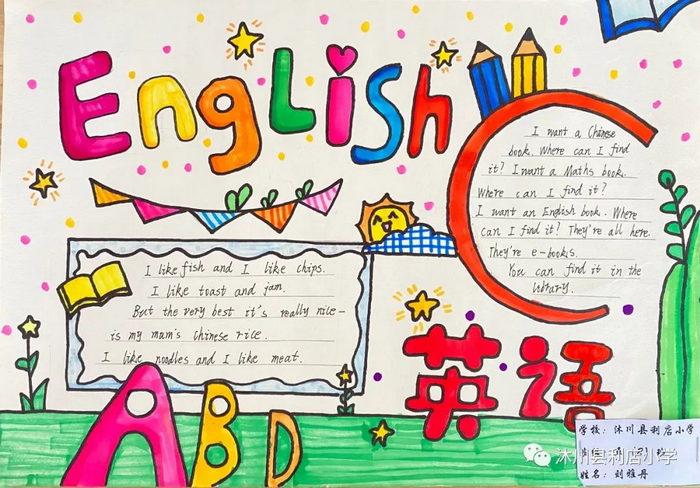 English
I want a Chinese
book. Where can I find
it? I want a Maths book.
Where can I find it?
I want an English book. Where
can I find it? They're all here.
They're e-books.
You can find it in the
library.
I like fish and I like chips.
I like toast and jam.
But the very best it's really nice-
is my mum's Chinese rice.
I like noodles and I like meat.
英语
ABD
学校：沐川县利店小学
姓名：刘雅丹
沐川县利店小学